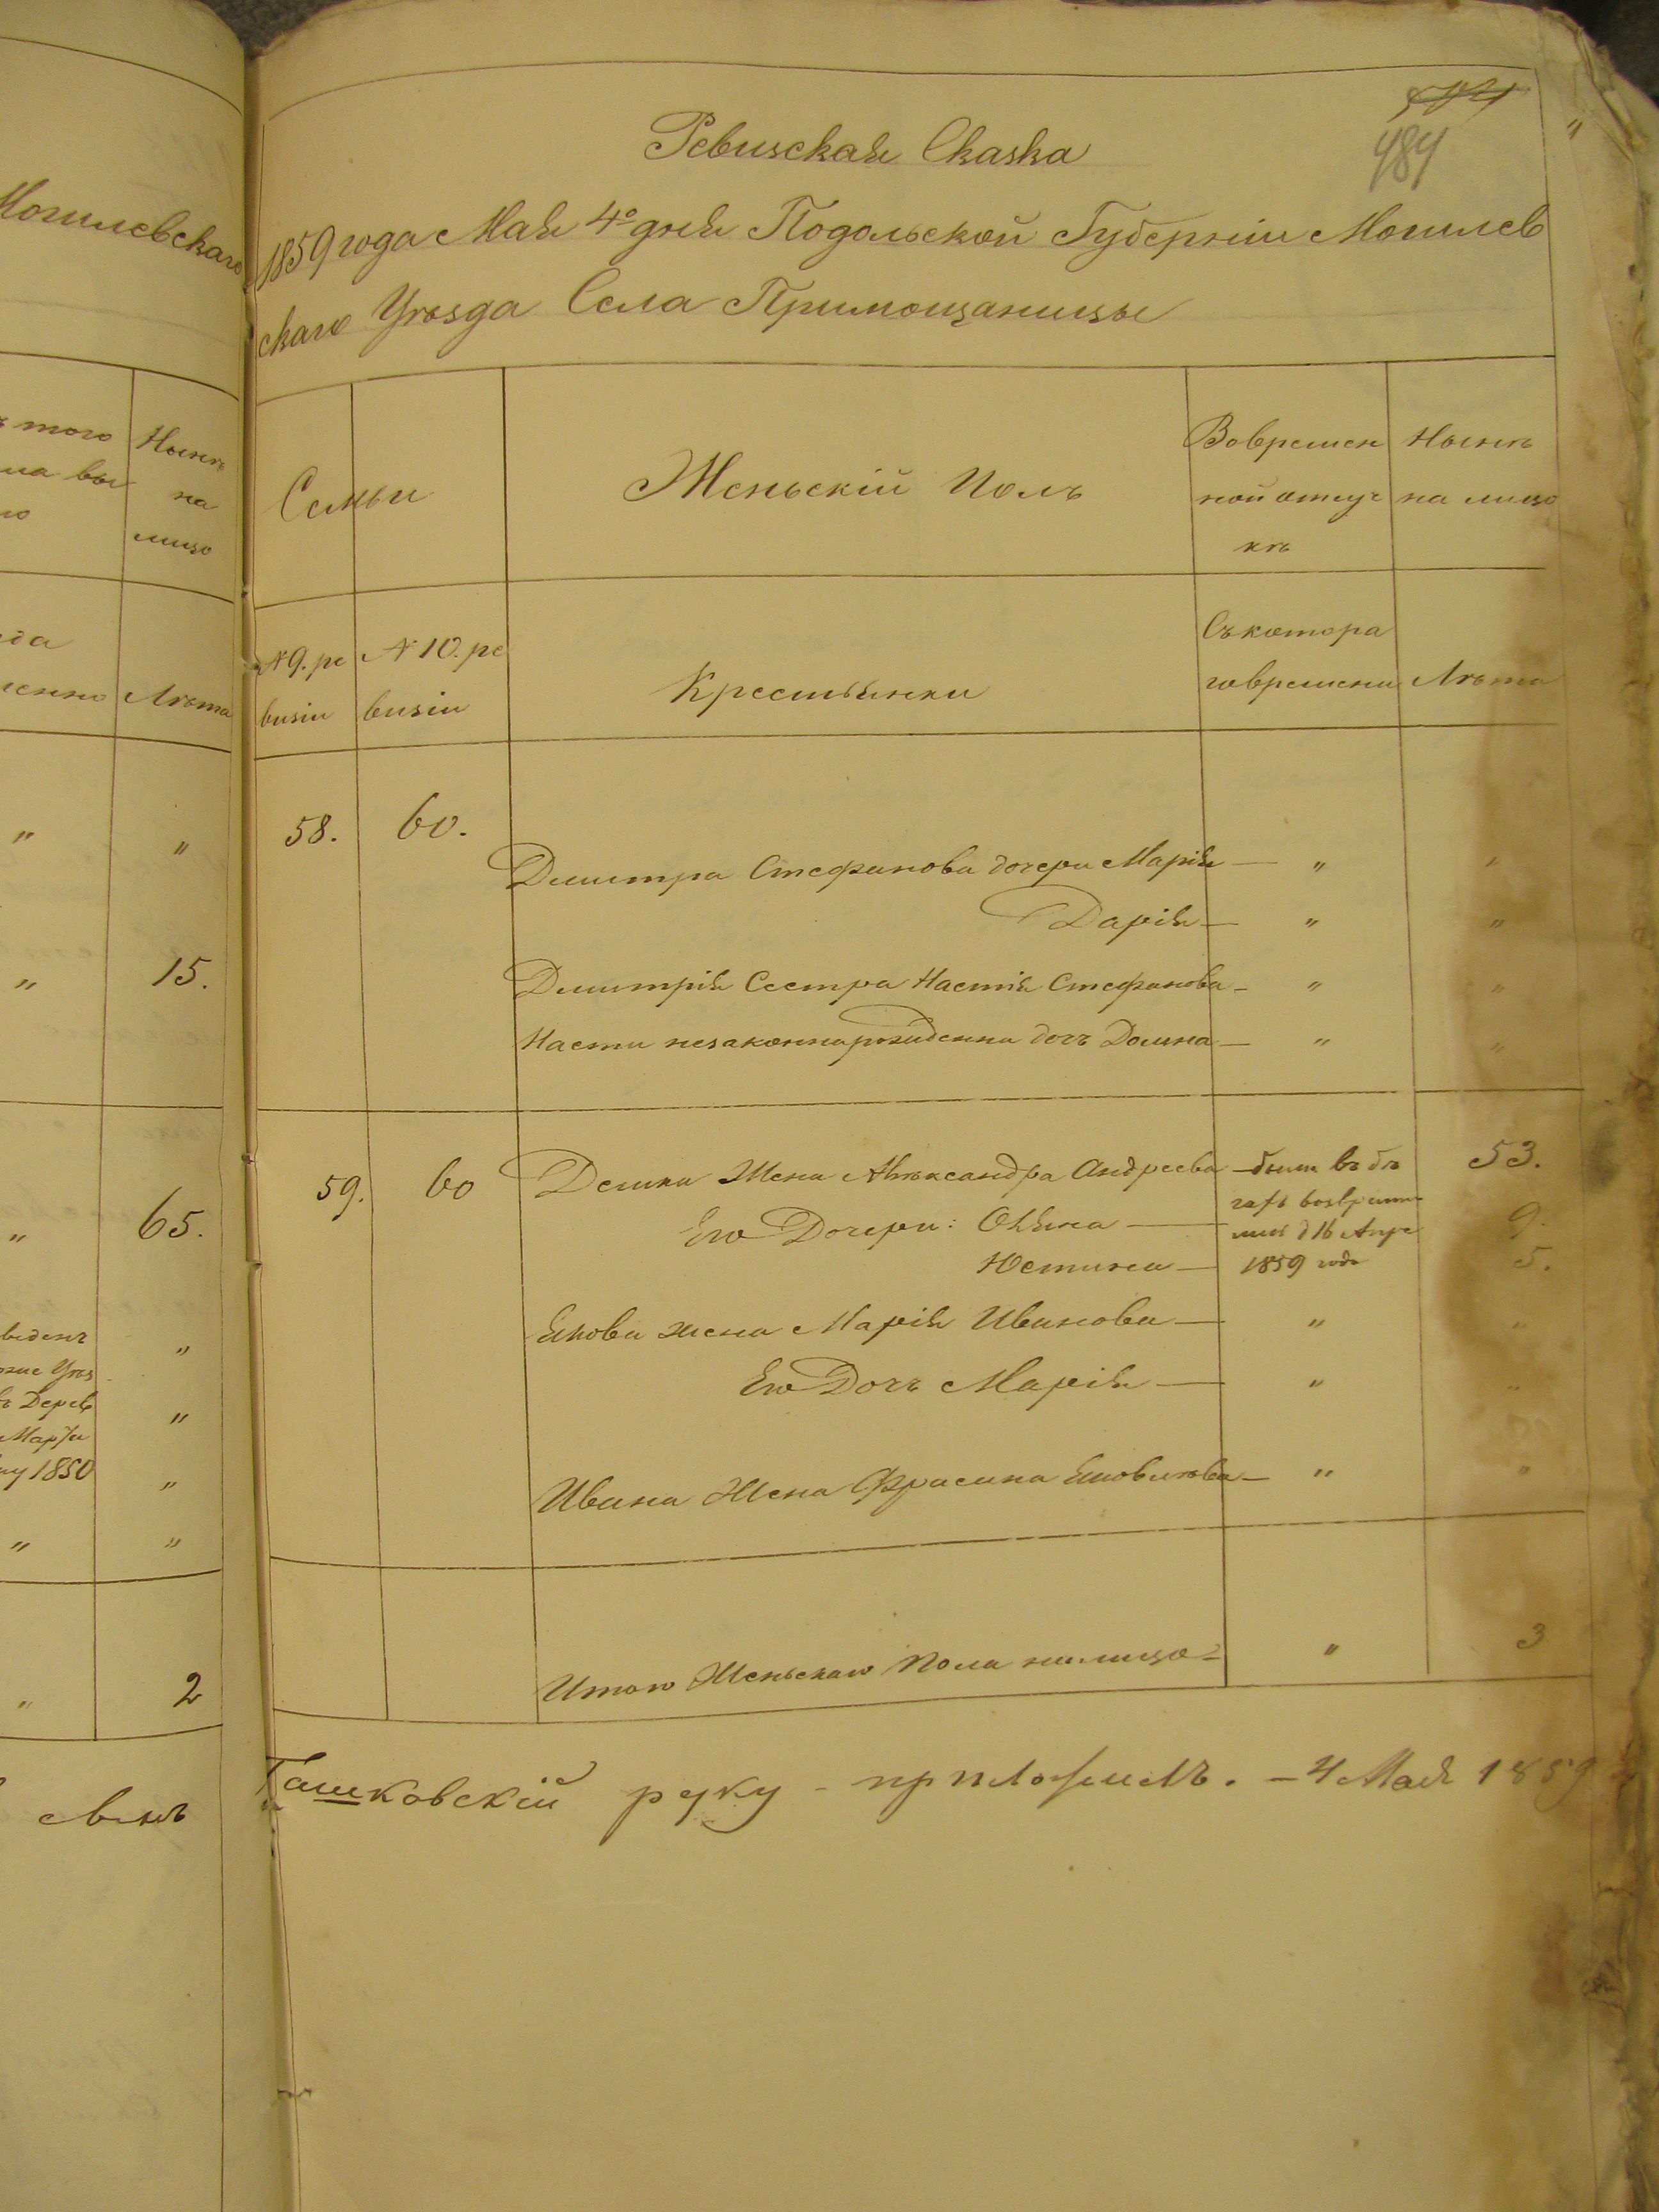 Могилевскаго
того
ма вы
Нынѣ
на
лицо
Лѣта
"
"
"
15.
"
65.
"
Дерев
1850
"
"
"
"
"
"
2
484
"
Ревизская Сказка
1859 года Мая 4º дня Подольской Губерніи Могилев
скаго Уѣзда Села Примощаницы
Семьи
Женьскій Полъ
Вовремен
ной отлуч
кѣ
Нынѣ
на лицо
№ 9. ре
визіи
№ 10. ре
визіи
Крестьянки
Съкотора
говремени
Лѣта
58. 60.
Димитра Стефанова дочери Марія — " "
Дарія — " "
Димитрія Сестра Настія Стефанова — " "
Насти незаконнарожденна дочъ Домна — " "
59. 60 Демка Жена Алѣксандра Андреева — были въ бѣ 53.
гахъ
Его Дочери: Оляна — 9.
д 16 Апре
Юстина — 1859 года 5.
Якова жена Марія Иванова — " "
Его Дочъ Марія — " "
Ивана Жена Фрасина Яковлѣва — " "
Итого Женьскаго Пола налицо — " 3
Ташковскій руку приложилъ. — 4 Мая 1859